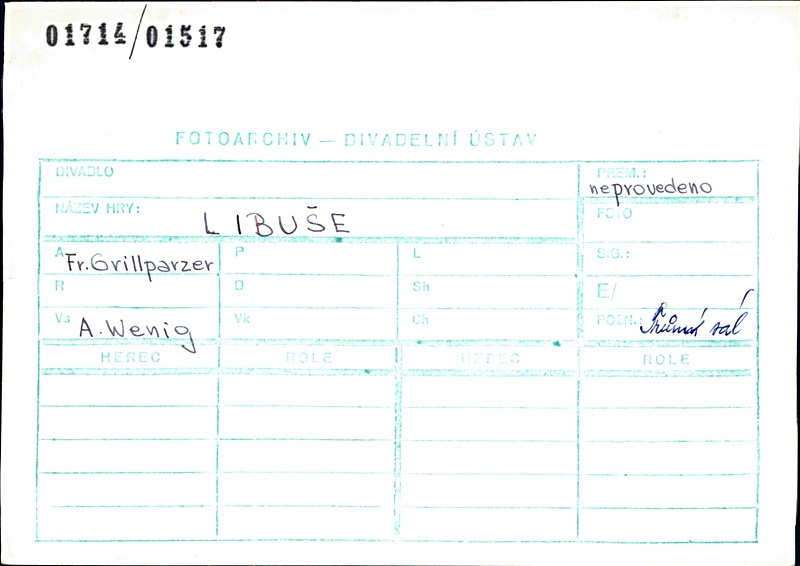 01714/01517
FOTOARCHIV — DIVADELNÍ ÚSTAV
DIVADLO
PREM.:
neprovedeno
NÁZEV HRY:
LIBUŠE
FOTO
A Fr. Grillparzer
P
L
S.G.:
R
D
Sh
E/
Vs A. Wenig
Vk
Ch
POZN.: sál
HEREC
ROLE
HEREC
ROLE